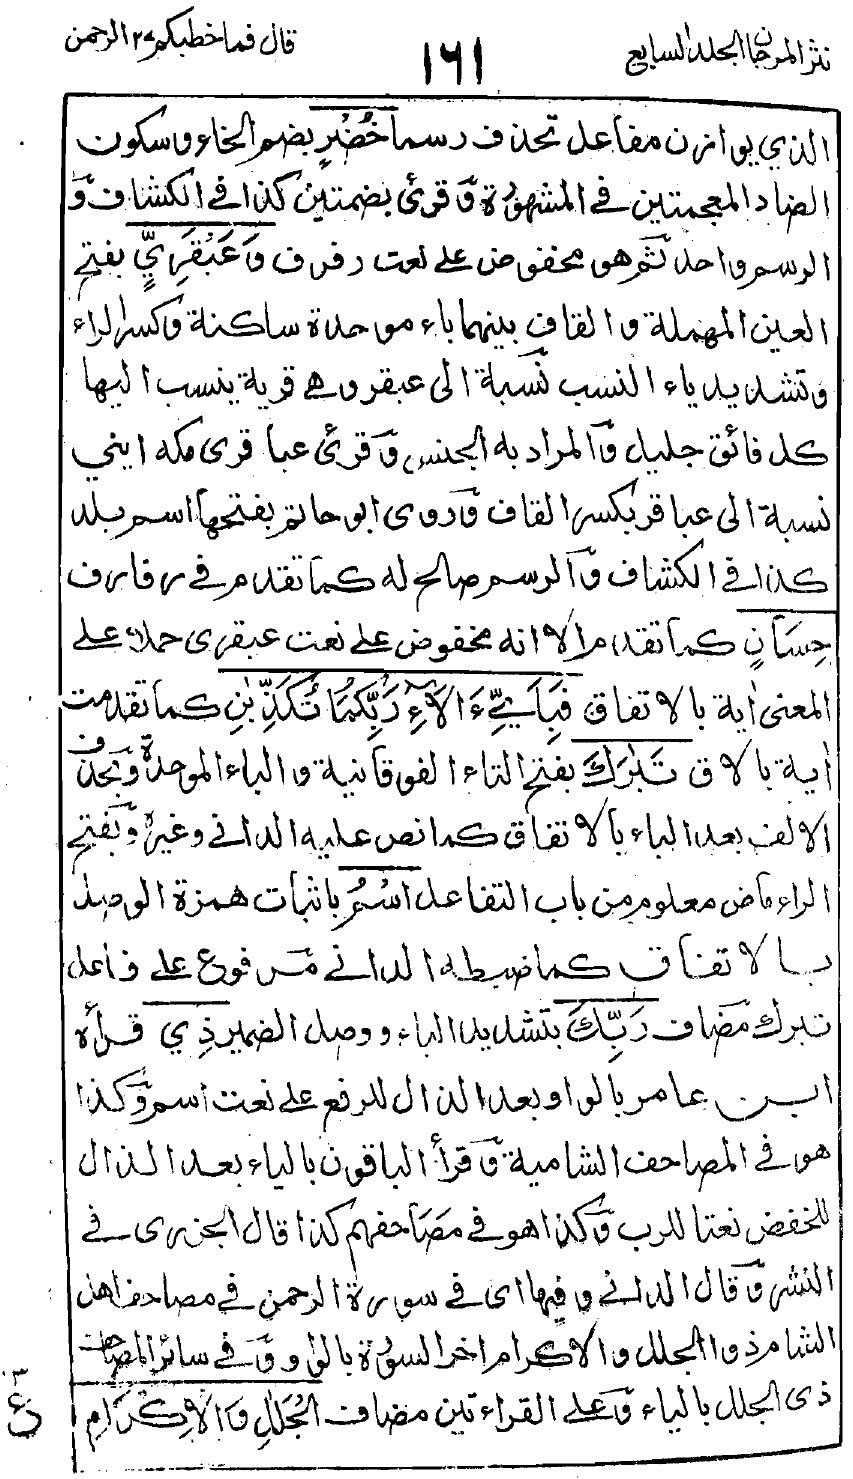 نثر المرجان الجلد السابع
١٦١
قال فما خطبكم ٢٧ الرحمن
الذي يوازن مفاعل تحذف رسما خُضْرٍ بضم الخاء وسكون
الضاد المعجمتين في المشهورة وقرئ بضمتين كذا في الكشاف و
الرسم واحد ثم هو مخفوض على نعت رفرف وَعَبْقَرِيٍّ بفتح
العين المهملة والقاف بينهما باء موحدة ساكنة وكسر الراء
وتشديد ياء النسب نسبة الى عبقر وهي قرية ينسب اليها
كل فائق جليل والمراد به الجنس وقرئ عباقرى مكه ايني
نسبة الى عباقر بكسر القاف وروى ابو حاتم بفتحها اسم بلد
كذا في الكشاف والرسم صالح له كما تقدم في رفارف
حِسَانٍ كما تقدم الا انه مخفوض على نعت عبقرى حملا على
المعنى اٰية بالاتفاق فَبِاَيِّ ءَالَآءِ رَبِّكُمَا تُكَذِّبٰنِ كما تقدمت
اٰية بالاق تَبٰرَكَ بفتح التاء الفوقانية والباء الموحدة وبحذف
الالف بعد الباء بالاتفاق كما نص عليه الداني وغيره وبفتح
الراء ماض معلوم من باب التفاعل اسْمُ باثبات همزة الوصل
بالاتفاق كما ضبطه الداني مرفوع على فاعل
تبرك مضاف رَبِّكَ بتشديد الباء ووصل الضمير ذِي قرأه
ابن عامر بالواو بعد الذال للرفع على نعت اسم وكذا
هو في المصاحف الشامية وقرأ الباقون بالياء بعد الذال
للخفض نعتا للرب وكذا هو في مصاحفهم كذا قال الجزرى في
النشر وقال الداني وفيها اى في سورة الرحمن في مصاحف اهل
الشام ذوا الجلل والاكرام اخر السورة بالواو وفي سائر المصاحف
ذى الجلل بالياء وعلى القراءتين مضاف الْجَلٰلِ وَالْاِكْرَامِ
٣
ع